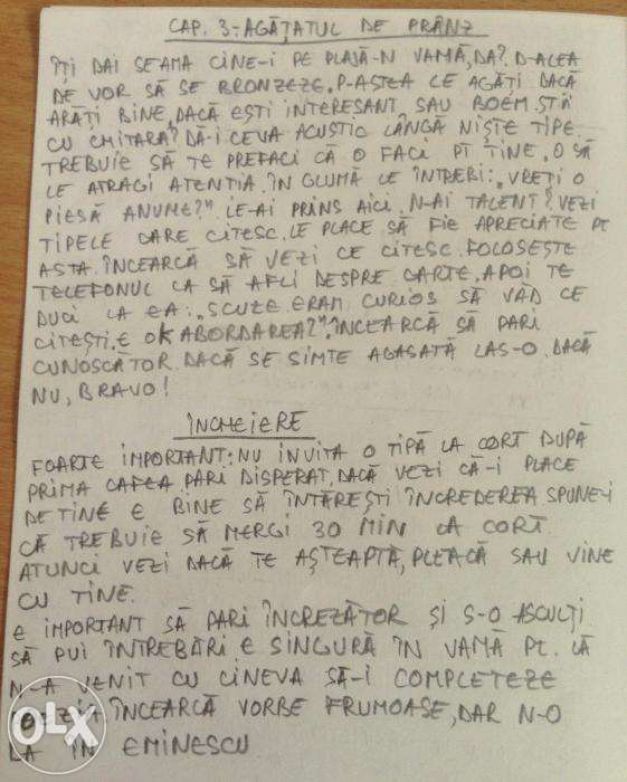 CAP. 3-AGĂȚATUL DE PRÂNZ
ÎȚI DAI SEAMA CINE-I PE PLAJĂ-N VAMĂ, DA? D-ALEA
DE VOR SĂ SE BRONZEZE. P-ASTEA LE AGĂȚI DACĂ
ARĂȚI BINE, DACĂ EȘTI INTERESANT, SAU BOEM. STĂ
CU CHITARA? DĂ-I CEVA ACUSTIC LÂNGĂ NIȘTE TIPE.
TREBUIE SĂ TE PREFACI CĂ O FACI PT TINE. O SĂ
LE ATRAGI ATENTIA. ÎN GLUMĂ LE ÎNTREBI: „VREȚI O
PIESĂ ANUME?" LE-AI PRINS AICI. N-AI TALENT? VEZI
TIPELE CARE CITESC. LE PLACE SĂ FIE APRECIATE PT
ASTA. ÎNCEARCĂ SĂ VEZI CE CITESC. FOLOSEȘTE
TELEFONUL CA SĂ AFLI DESPRE CARTE, APOI TE
DUCI LA EA: „SCUZE ERAM CURIOS SĂ VĂD CE
CITEȘTI. E OK ABORDAREA?". ÎNCEARCĂ SĂ PARI
CUNOSCĂTOR. DACĂ SE SIMTE AGASATĂ LAS-O. DACĂ
NU, BRAVO!
ÎNCHEIERE
FOARTE IMPORTANT: NU INVITA O TIPĂ LA CORT DUPĂ
PRIMA CAFEA PARI DISPERAT, DACĂ VEZI CĂ-I PLACE
DE TINE E BINE SĂ ÎNTĂREȘTI ÎNCREDEREA SPUNE-I
CĂ TREBUIE SĂ MERGI 30 MIN LA CORT.
ATUNCI VEZI DACĂ TE AȘTEAPTĂ, PLEACĂ SAU VINE
CU TINE.
E IMPORTANT SĂ PARI ÎNCREZĂTOR ȘI S-O ASCULȚI
SĂ PUI ÎNTREBĂRI E SINGURĂ ÎN VAMĂ PT. CĂ
N-A VENIT CU CINEVA SĂ-I COMPLETEZE
POEZIA. ÎNCEARCĂ VORBE FRUMOASE, DAR N-O
DA ÎN EMINESCU
OLX